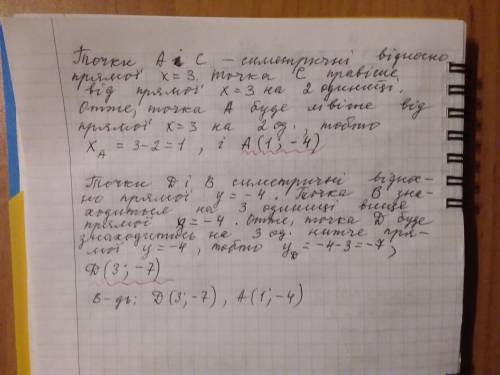 Точки А і С – симетричні відносно
прямої x = 3. точка С правіше
від прямої x = 3 на 2 одиниці.
Отже, точка А буде лівіше від
прямої x = 3 на 2 од., тобто
x_A = 3-2 = 1, і А(1; -4)
Точки D і В симетричні віднос-
но прямої y = -4. Точка В зна-
ходиться на 3 одиниці вище
прямої y = -4. Отже, точка D буде
знаходитись на 3 од. нижче пря-
мої y = -4, тобто y_D = -4-3 = -7,
D(3; -7)
В-дь: D(3; -7), А(1; -4)